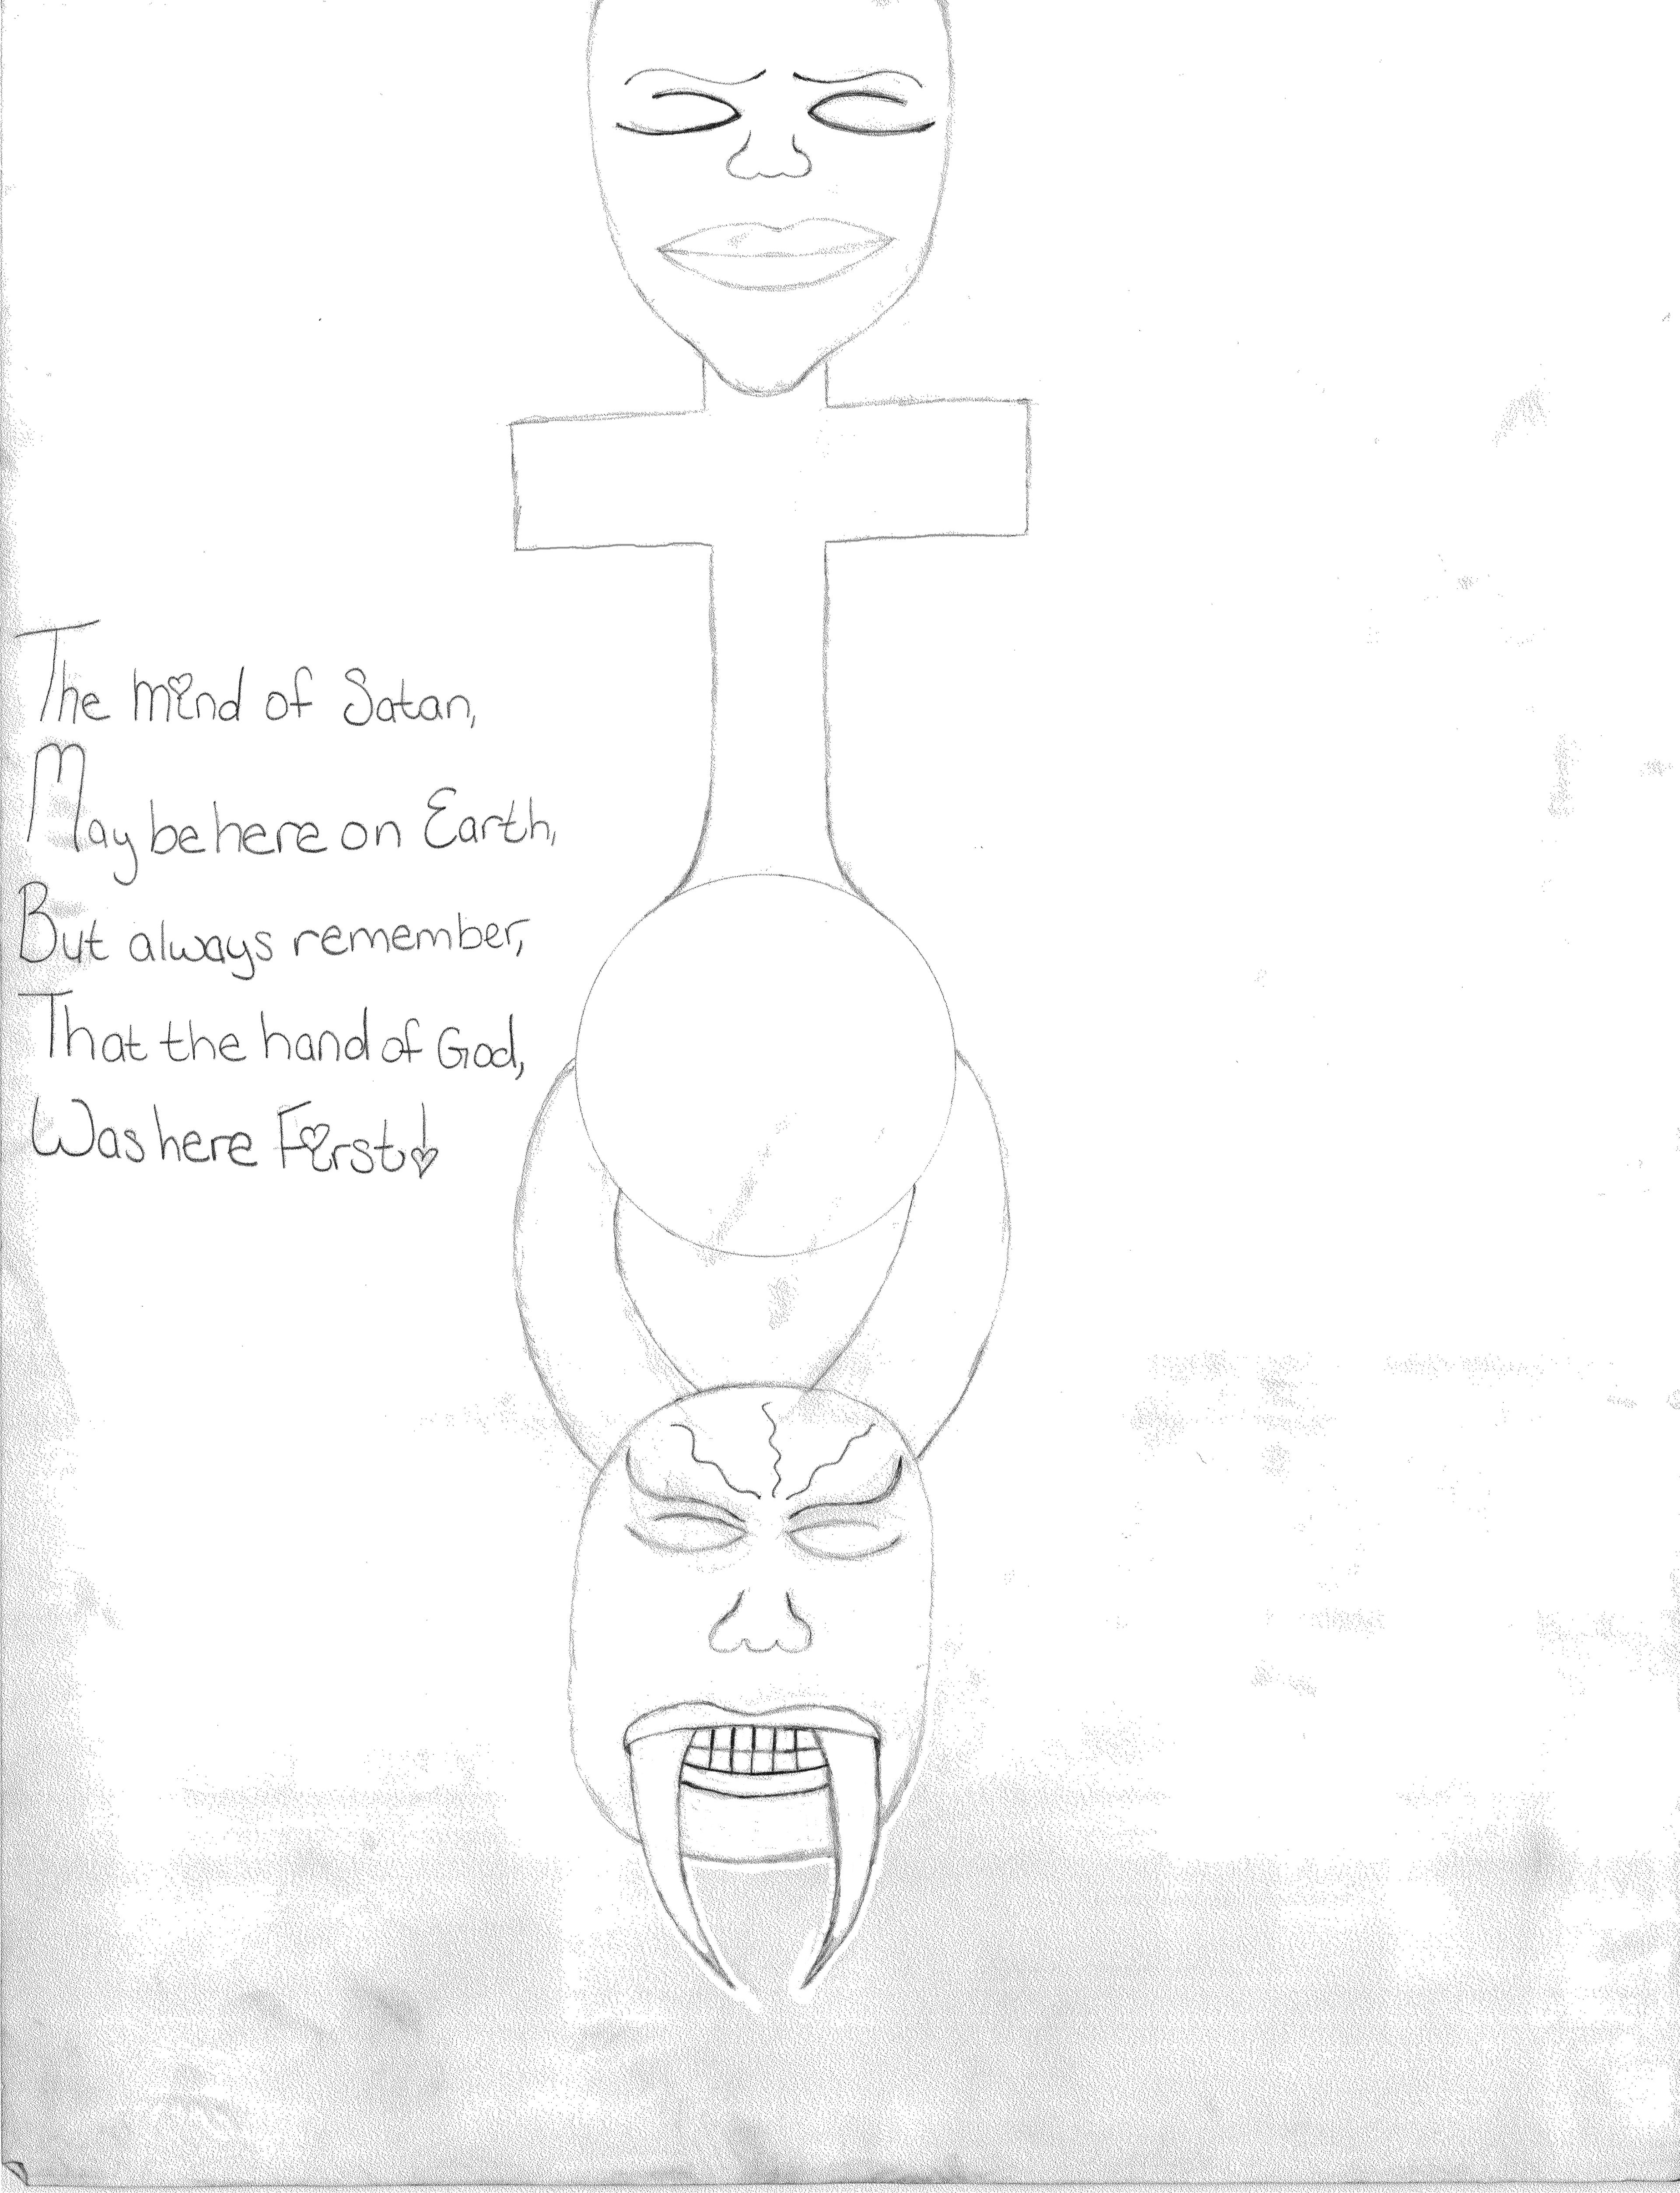 The mind of Satan,
May be here on Earth,
But always remember,
That the hand of God,
Was here First!